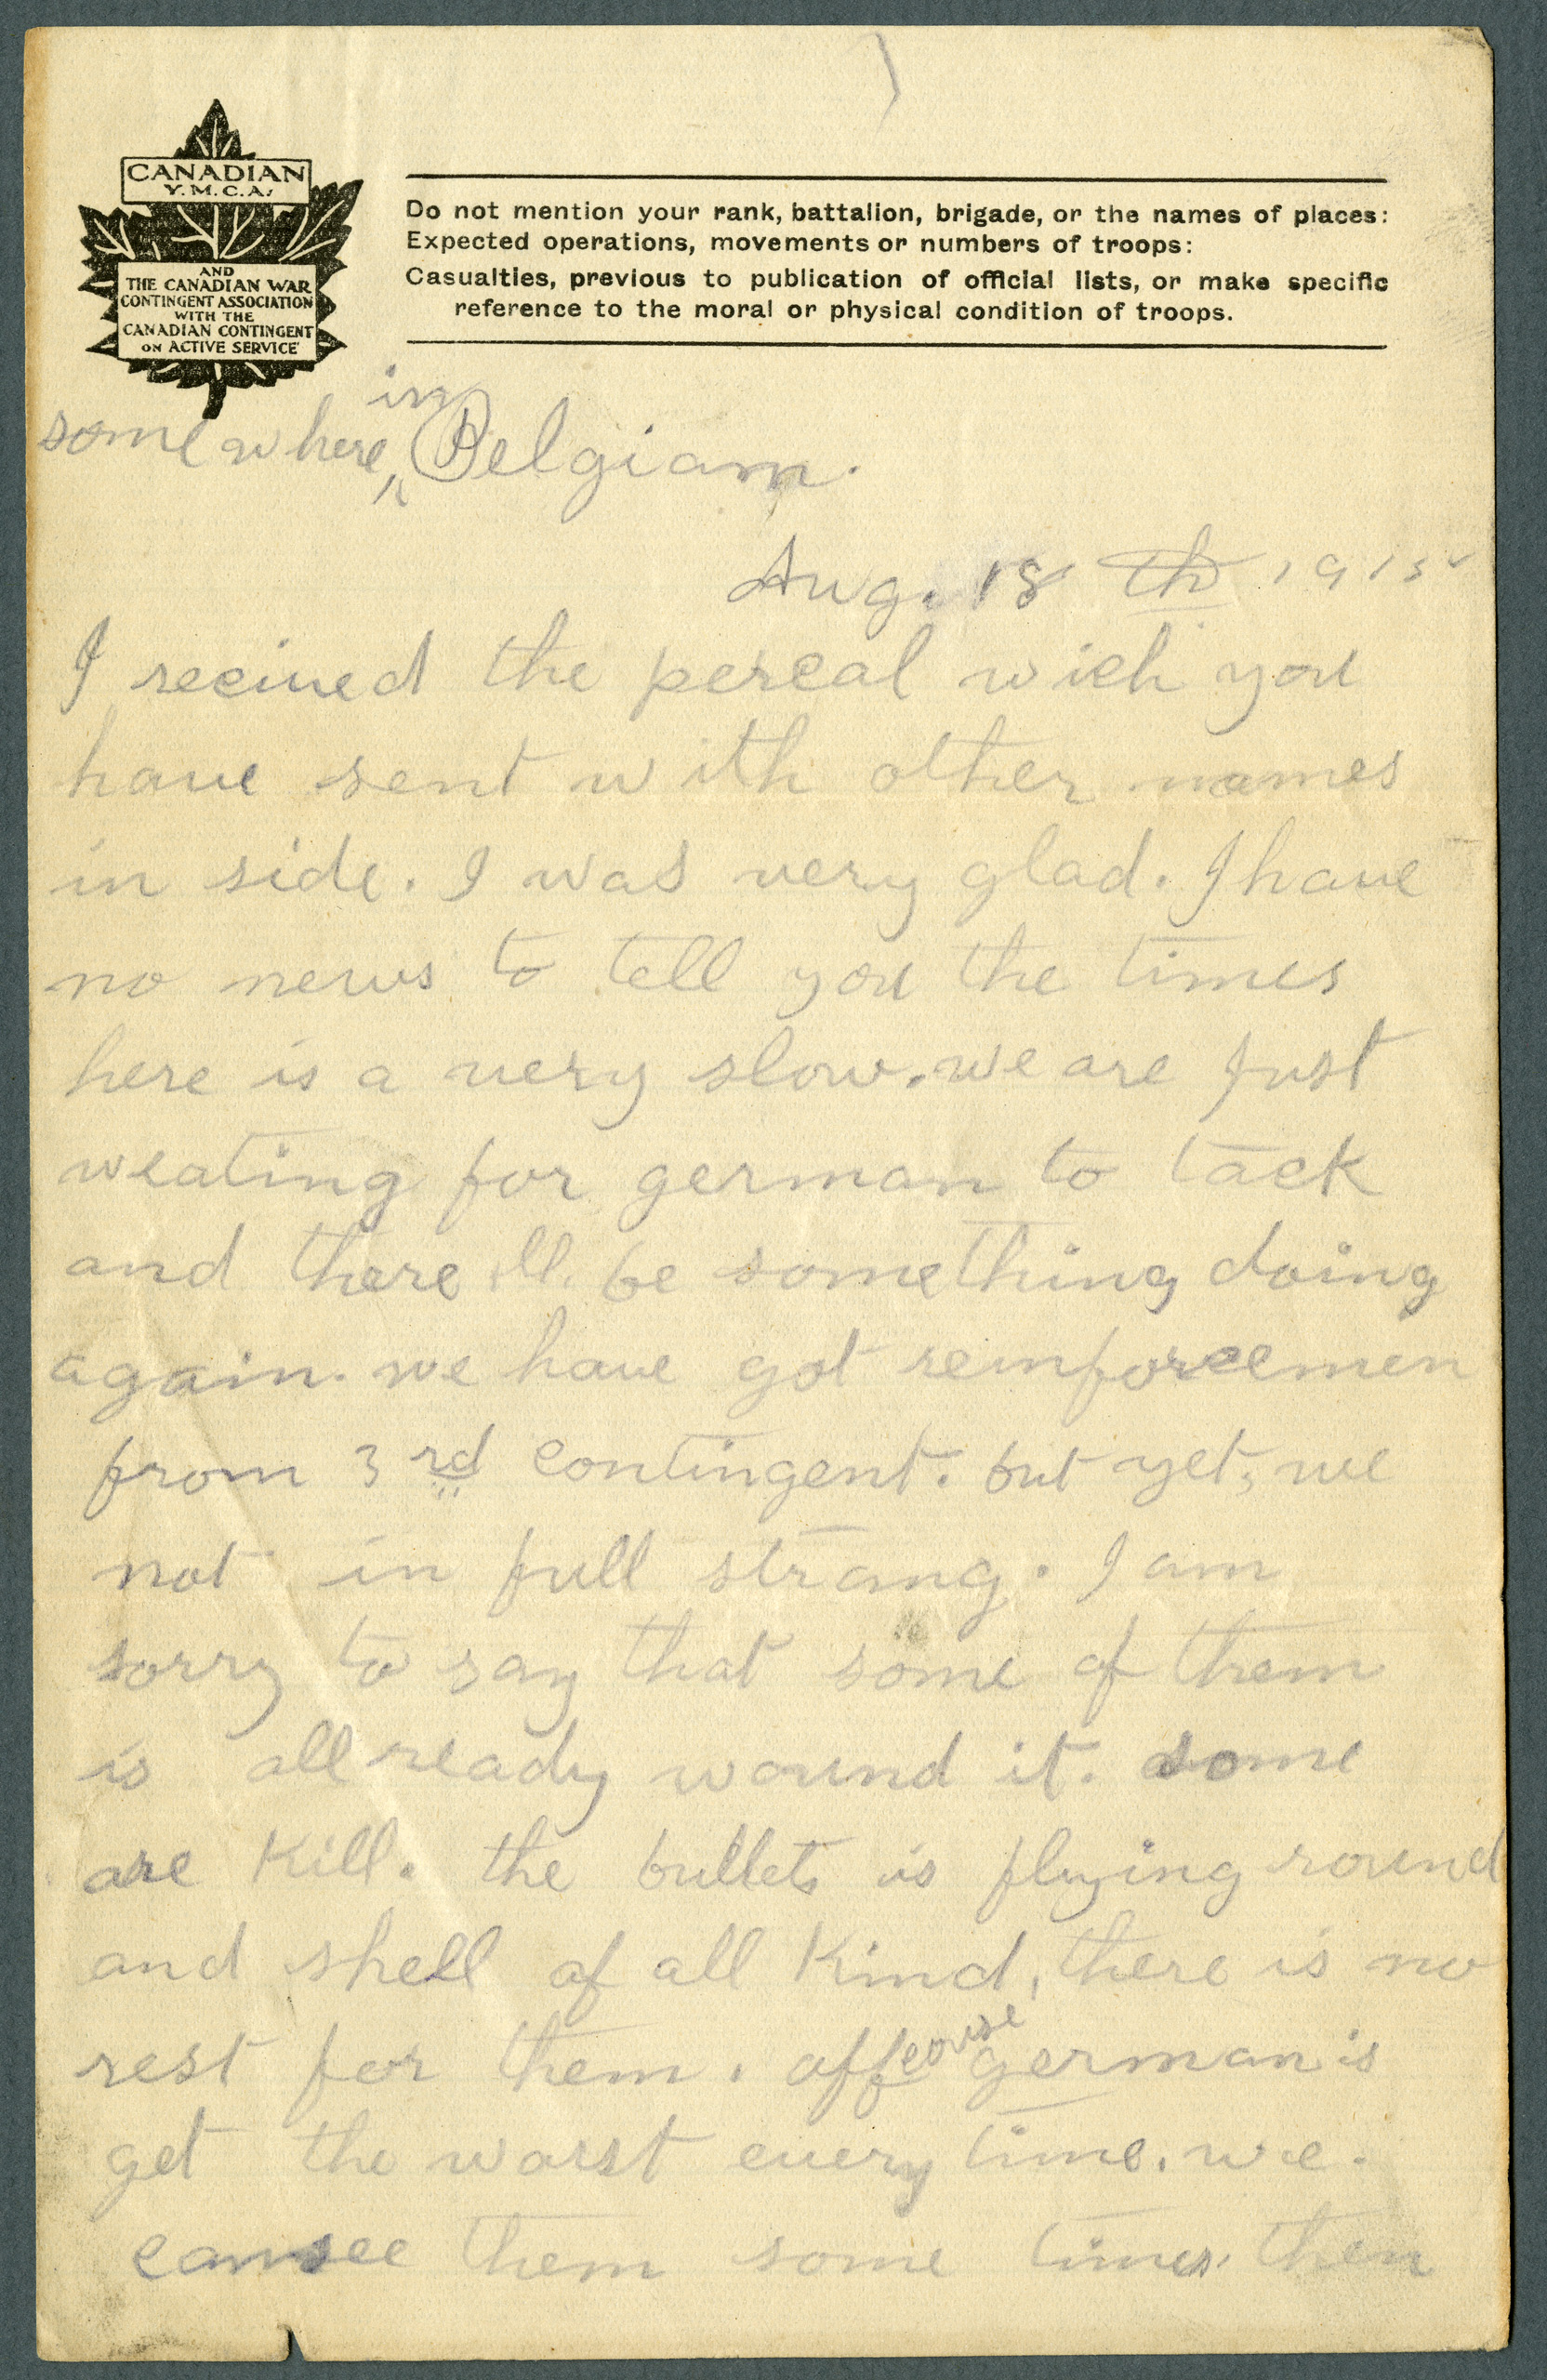 CANADIAN
Y.M.C.A.
AND
THE CANADIAN WAR
CONTINGENT ASSOCIATION
WITH THE
CANADIAN CONTINGENT
ON ACTIVE SERVICE
Do not mention your rank, battalion, brigade, or the names of places:
Expected operations, movements or numbers of troops:
Casualties, previous to publication of official lists, or make specific
reference to the moral or physical condition of troops.
somewhere in Belgiam.
Aug. 18 th 1915
I reciued the percal wich you
have sent with other names
in side. I was very glad. I have
no news to tell you the times
here is a very slow. we are just
weating for german to tack
and there ll. be something doing
again. we have got reinforcemen
from 3 rd contingent. but yet, we
not in full strang. I am
sorry to say that some of them
is all ready wound it. some
are Kill. the bullets is flying round
and shell of all Kind, there is no
rest for them. off course german is
get the worst every time. we.
can see them some times. then